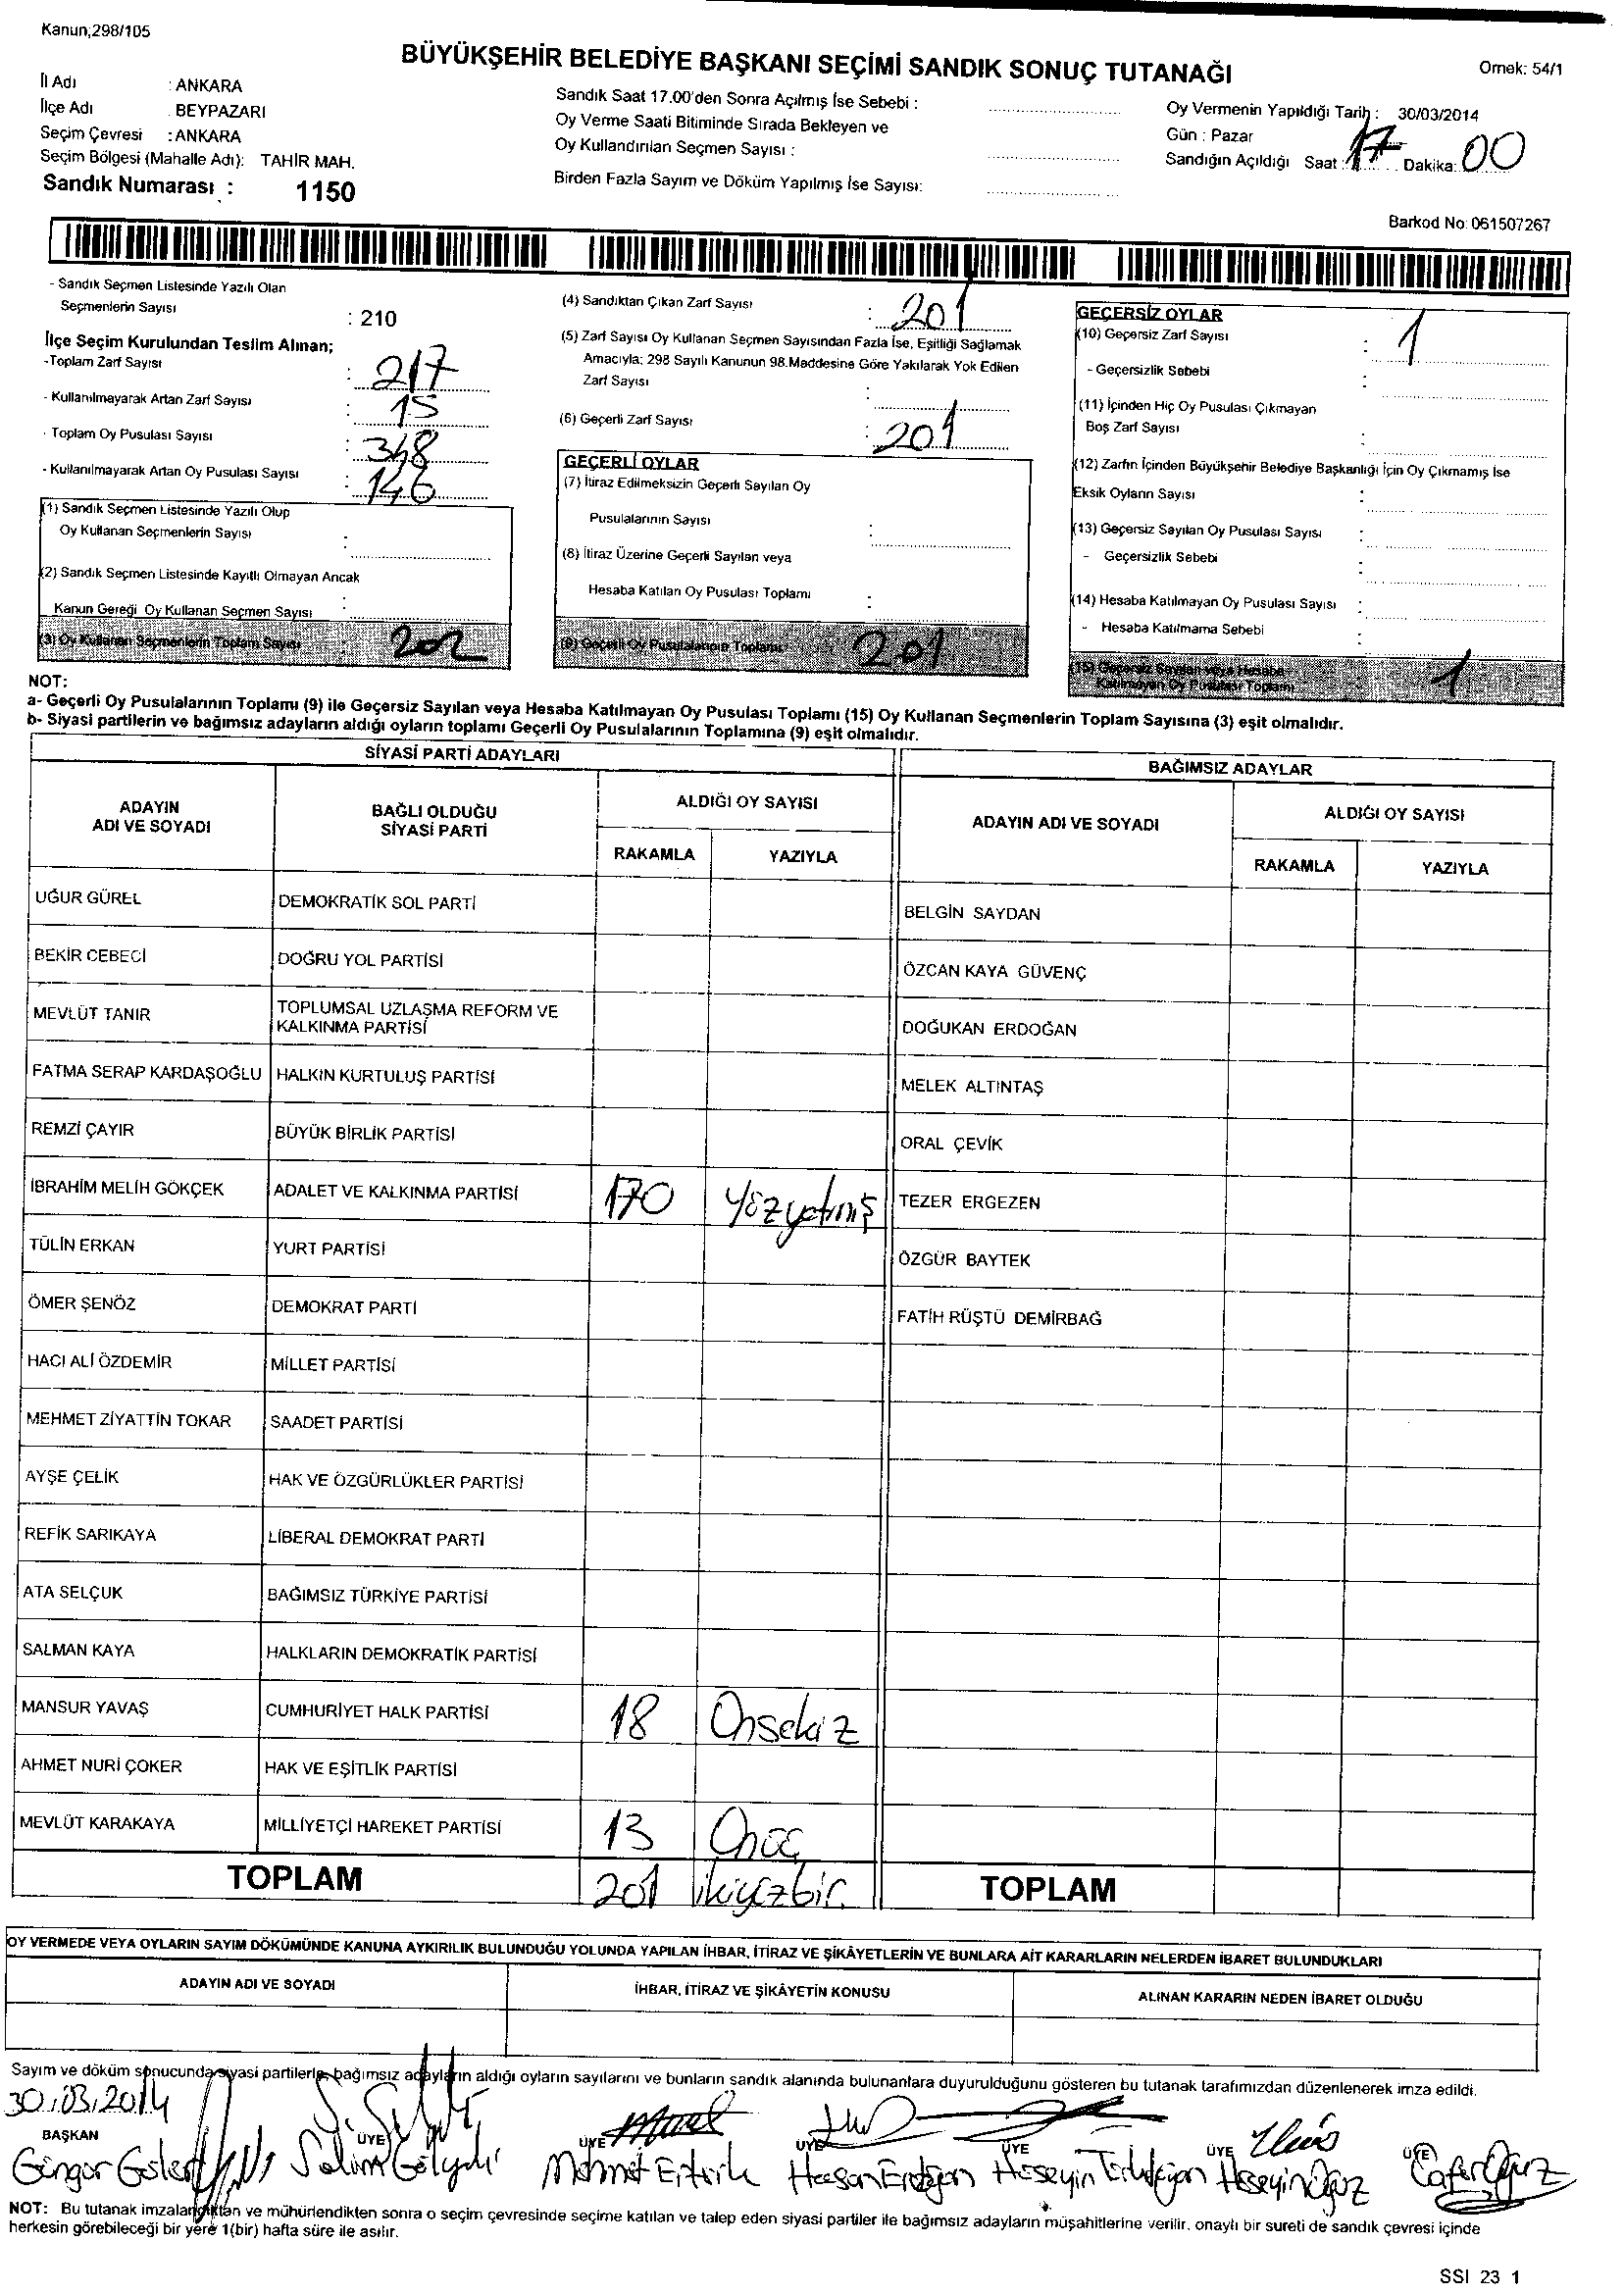 Kanun;298/105
BÜYÜKŞEHİR BELEDİYE BAŞKANI SEÇİMİ SANDIK SONUÇ TUTANAĞI
Örnek: 54/1
İl Adı : ANKARA
İlçe Adı BEYPAZARI
Seçim Çevresi : ANKARA
Seçim Bölgesi (Mahalle Adı): TAHİR MAH.
Sandık Numarası : 1150
Sandık Saat 17.00'den Sonra Açılmış İse Sebebi :
Oy Verme Saati Bitiminde Sırada Bekleyen ve
Oy Kullandırılan Seçmen Sayısı :
Birden Fazla Sayım ve Döküm Yapılmış İse Sayısı:
Oy Vermenin Yapıldığı Tarih : 30/03/2014
Gün : Pazar
Sandığın Açıldığı Saat : 17 Dakika: 00
Barkod No: 061507267
- Sandık Seçmen Listesinde Yazılı Olan
Seçmenlerin Sayısı : 210
İlçe Seçim Kurulundan Teslim Alınan;
-Toplam Zarf Sayısı : 217
- Kullanılmayarak Artan Zarf Sayısı : 15
- Toplam Oy Pusulası Sayısı : 348
- Kullanılmayarak Artan Oy Pusulası Sayısı : 146
(1) Sandık Seçmen Listesinde Yazılı Olup
Oy Kullanan Seçmenlerin Sayısı :
(2) Sandık Seçmen Listesinde Kayıtlı Olmayan Ancak
Kanun Gereği Oy Kullanan Seçmen Sayısı :
(3) Oy Kullanan Seçmenlerin Toplam Sayısı : 202
(4) Sandıktan Çıkan Zarf Sayısı : 201
(5) Zarf Sayısı Oy Kullanan Seçmen Sayısından Fazla İse, Eşitliği Sağlamak
Amacıyla; 298 Sayılı Kanunun 98.Maddesine Göre Yakılarak Yok Edilen
Zarf Sayısı :
(6) Geçerli Zarf Sayısı : 201
GEÇERLİ OYLAR
(7) İtiraz Edilmeksizin Geçerli Sayılan Oy
Pusulalarının Sayısı :
(8) İtiraz Üzerine Geçerli Sayılan veya
Hesaba Katılan Oy Pusulası Toplamı :
(9) Geçerli Oy Pusulalarının Toplamı : 201
GEÇERSİZ OYLAR
(10) Geçersiz Zarf Sayısı : 1
- Geçersizlik Sebebi :
(11) İçinden Hiç Oy Pusulası Çıkmayan
Boş Zarf Sayısı :
(12) Zarfın İçinden Büyükşehir Belediye Başkanlığı İçin Oy Çıkmamış İse
Eksik Oyların Sayısı :
(13) Geçersiz Sayılan Oy Pusulası Sayısı :
- Geçersizlik Sebebi :
(14) Hesaba Katılmayan Oy Pusulası Sayısı :
- Hesaba Katılmama Sebebi :
(15) Geçersiz Sayılan veya Hesaba
Katılmayan Oy Pusulası Toplamı 1
NOT:
a- Geçerli Oy Pusulalarının Toplamı (9) ile Geçersiz Sayılan veya Hesaba Katılmayan Oy Pusulası Toplamı (15) Oy Kullanan Seçmenlerin Toplam Sayısına (3) eşit olmalıdır.
b- Siyasi partilerin ve bağımsız adayların aldığı oyların toplamı Geçerli Oy Pusulalarının Toplamına (9) eşit olmalıdır.
SİYASİ PARTİ ADAYLARI
ADAYIN
ADI VE SOYADI
BAĞLI OLDUĞU
SİYASİ PARTİ
ALDIĞI OY SAYISI
RAKAMLA YAZIYLA
UĞUR GÜREL DEMOKRATİK SOL PARTİ
BEKİR CEBECİ DOĞRU YOL PARTİSİ
MEVLÜT TANIR TOPLUMSAL UZLAŞMA REFORM VE
KALKINMA PARTİSİ
FATMA SERAP KARDAŞOĞLU HALKIN KURTULUŞ PARTİSİ
REMZİ ÇAYIR BÜYÜK BİRLİK PARTİSİ
İBRAHİM MELİH GÖKÇEK ADALET VE KALKINMA PARTİSİ 170 Yüzyetmiş
TÜLİN ERKAN YURT PARTİSİ
ÖMER ŞENÖZ DEMOKRAT PARTİ
HACI ALİ ÖZDEMİR MİLLET PARTİSİ
MEHMET ZİYATTİN TOKAR SAADET PARTİSİ
AYŞE ÇELİK HAK VE ÖZGÜRLÜKLER PARTİSİ
REFİK SARIKAYA LİBERAL DEMOKRAT PARTİ
ATA SELÇUK BAĞIMSIZ TÜRKİYE PARTİSİ
SALMAN KAYA HALKLARIN DEMOKRATİK PARTİSİ
MANSUR YAVAŞ CUMHURİYET HALK PARTİSİ 18 Onsekiz
AHMET NURİ ÇOKER HAK VE EŞİTLİK PARTİSİ
MEVLÜT KARAKAYA MİLLİYETÇİ HAREKET PARTİSİ 13 Onüç
TOPLAM 201 ikiyüzbir
BAĞIMSIZ ADAYLAR
ADAYIN ADI VE SOYADI
ALDIĞI OY SAYISI
RAKAMLA YAZIYLA
BELGİN SAYDAN
ÖZCAN KAYA GÜVENÇ
DOĞUKAN ERDOĞAN
MELEK ALTINTAŞ
ORAL ÇEVİK
TEZER ERGEZEN
ÖZGÜR BAYTEK
FATİH RÜŞTÜ DEMİRBAĞ
TOPLAM
OY VERMEDE VEYA OYLARIN SAYIM DÖKÜMÜNDE KANUNA AYKIRILIK BULUNDUĞU YOLUNDA YAPILAN İHBAR, İTİRAZ VE ŞİKÂYETLERİN VE BUNLARA AİT KARARLARIN NELERDEN İBARET BULUNDUKLARI
ADAYIN ADI VE SOYADI İHBAR, İTİRAZ VE ŞİKÂYETİN KONUSU ALINAN KARARIN NEDEN İBARET OLDUĞU
Sayım ve döküm sonucunda siyasi partilerle, bağımsız adayların aldığı oyların sayılarını ve bunların sandık alanında bulunanlara duyurulduğunu gösteren bu tutanak tarafımızdan düzenlenerek imza edildi.
30.03.2014
BAŞKAN ÜYE ÜYE ÜYE ÜYE ÜYE ÜYE
Güngör Selim Mehmet Hasan Erdoğan Hüseyin Hüseyin Oğuz Cafer Oğuz
NOT: Bu tutanak imzalandıktan ve mühürlendikten sonra o seçim çevresinde seçime katılan ve talep eden siyasi partiler ile bağımsız adayların müşahitlerine verilir. onaylı bir sureti de sandık çevresi içinde
herkesin görebileceği bir yere 1(bir) hafta süre ile asılır.
SSI 23 1